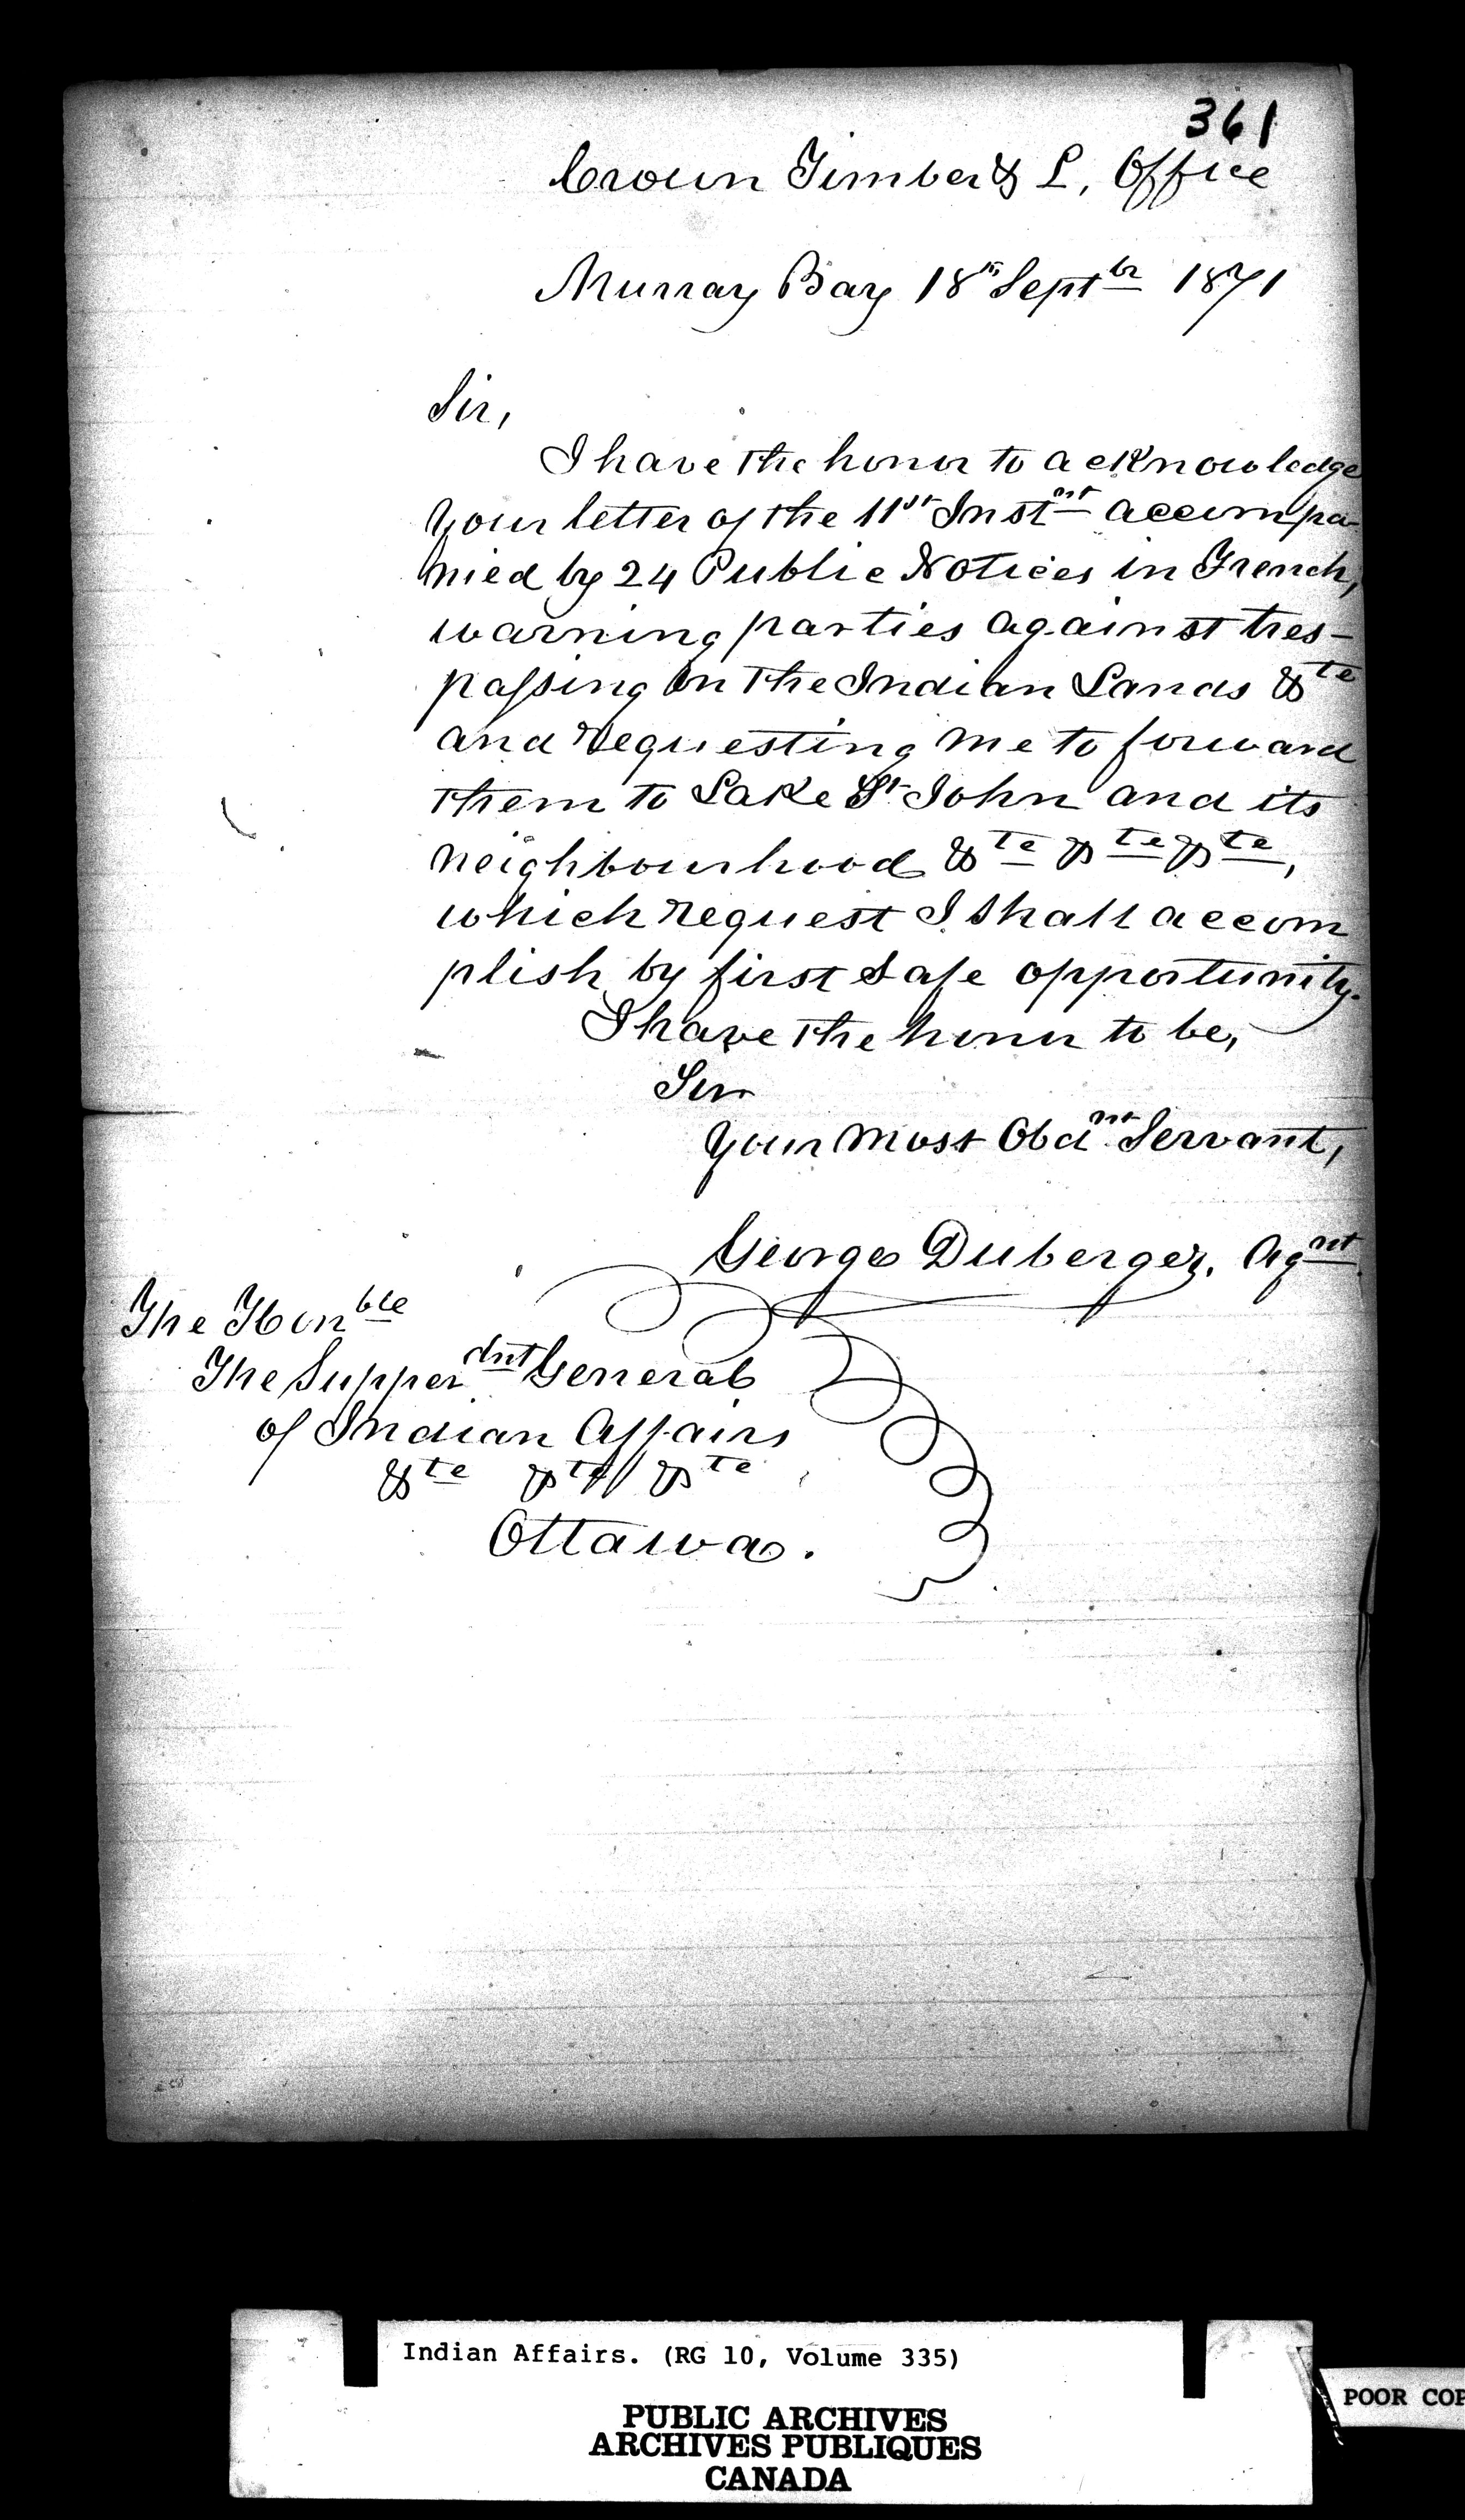 361
Crown Timber & L, Office
Murray Bay 18th Septbr 1871
Sir,
I have the honor to acknowledge
your letter of the 11st Instnt accompa-
nied by 24 Public Notices in French,
warning parties against tres-
passing on the Indian Lands &te
and requesting me to forward
them to Lake St John and its
neighbourhood &te &te &te,
which request I shall accom
plish by first safe opportunity.
I have the honor to be,
Sir
Your most Obdnt Servant,
George Duberger, Agnt
The Honble
The Supperdnt General
of Indian Affairs
&te &te &te
Ottawa.
Indian Affairs. (RG 10, Volume 335)
PUBLIC ARCHIVES
ARCHIVES PUBLIQUES
CANADA
POOR COP